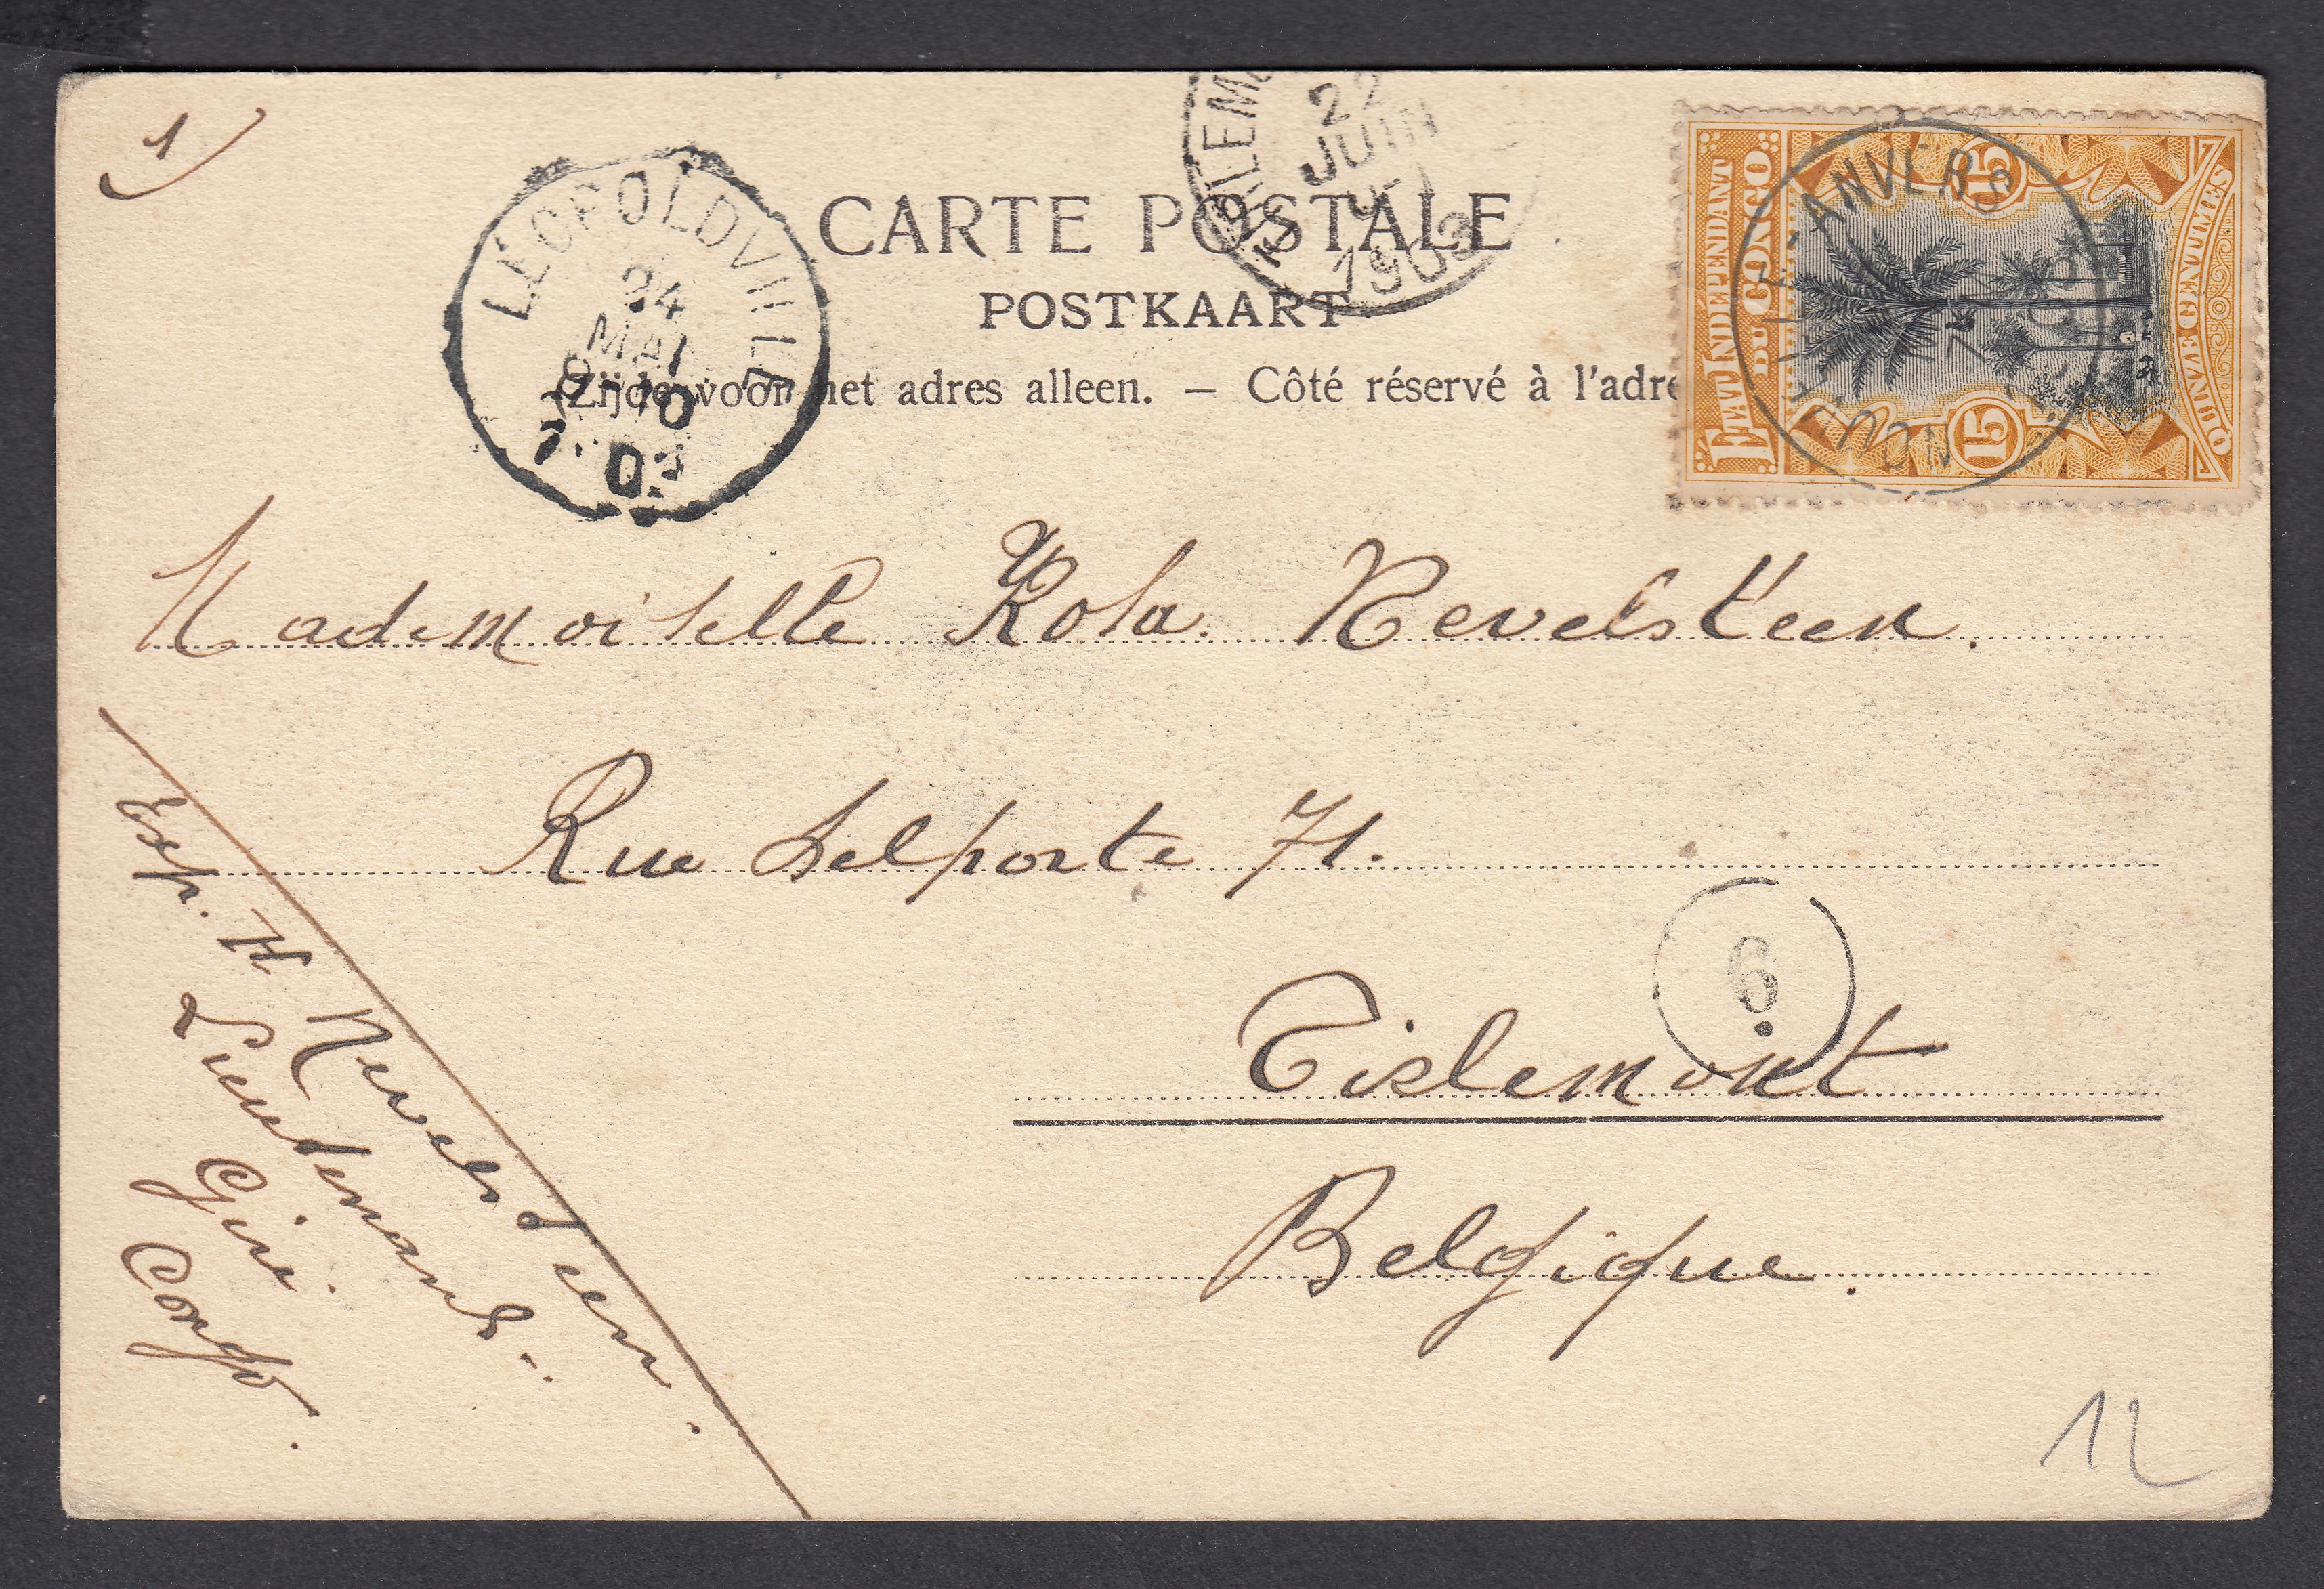 1)
LÉOPOLDVILLE
24
MAI
9-10
03
TIRLEMO
22
JUIN
1903
CARTE POSTALE
POSTKAART
(Zijde voor het adres alleen. — Côté réservé à l'adre
ETAT INDÉPENDANT
DU CONGO
15
15
QUINZE CENTIMES
ANVERS
Mademoiselle Rosa Nevelsteen.
Rue Delporte 71.
6
Tirlemont
Belgique.
Exp. H Nevelsteen.
Lieutenant.
Congo.
12